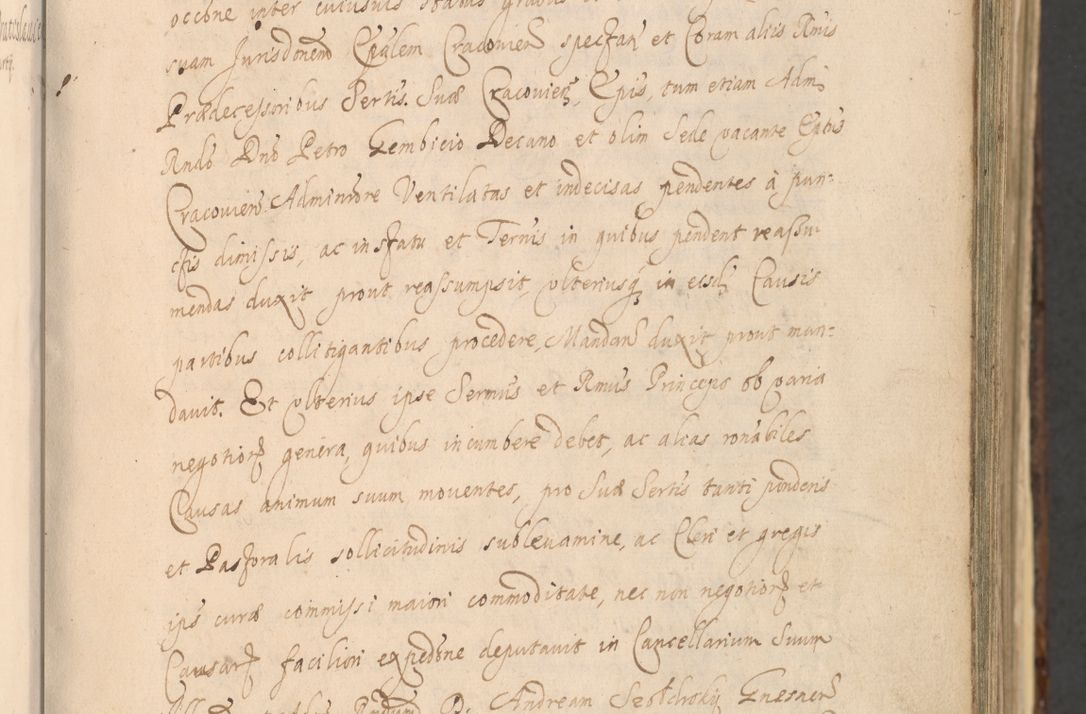 occõne inter cuiusuis status
suam Jurisdõnem Epãlem Cracovieñ spectañ et Coram alijs Rmis
Prædecessoribus Sertis Suæ Cracovieñ Epis, tum etiam Adm
Rndo Dnõ Petro Gembicio Decano et olim Sede vacante Eptus
Cracovieñ Adminrõre Ventilatas et indecisas pendentes à pun:
ctis dimissis, ac in statu et Ternis in quibus pendent reassu
mendas duxit prout reassumpsit, vlteriusq in eisd Causis
partibus collitigantibus procedere, Mandañ duxit prout man:
davit. Et vlterius ipse Sermus et Rmus Princeps ob varia
negotior genera, quibus incumbere debet, ac alias ronabiles
Causas animum suum moventes, pro Suæ Sertis tanti ponderis
et Pastoralis sollicitudinis sublevamine, ac Cleri et gregis
ipš curæ commissi maiori commoditate, nec non negotior et
Causar faciliori expedõne deputavit in Cancellarium Suum
Andream Gnesneñ